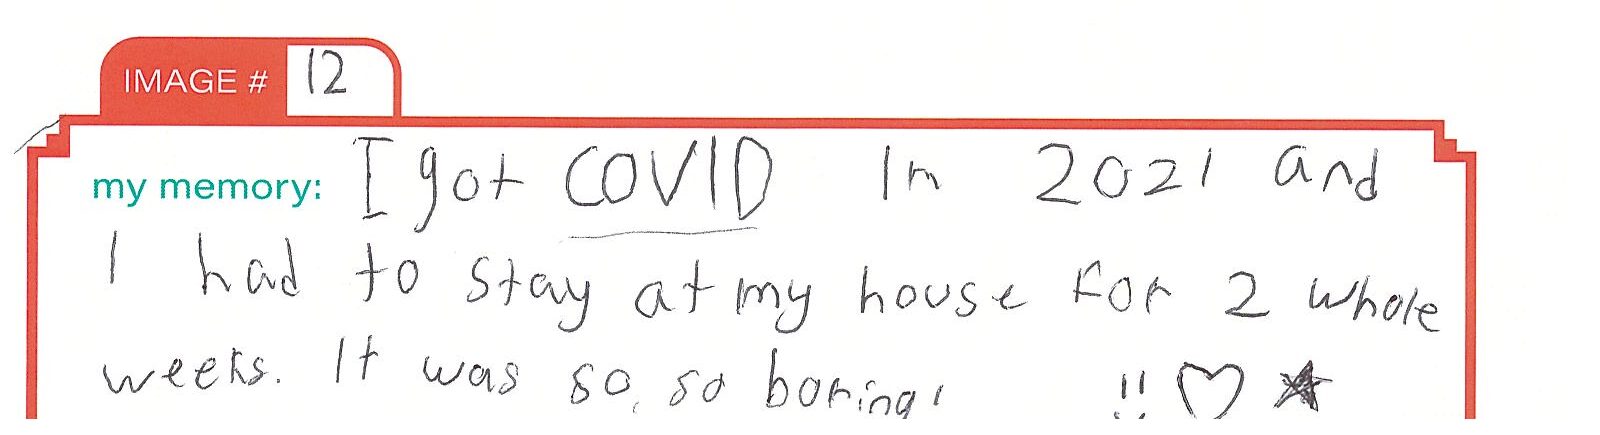 IMAGE # 12
my memory: I got COVID In 2021 and
I had to stay at my house for 2 whole
weeks. It was so, so boring! !! ♡ ★